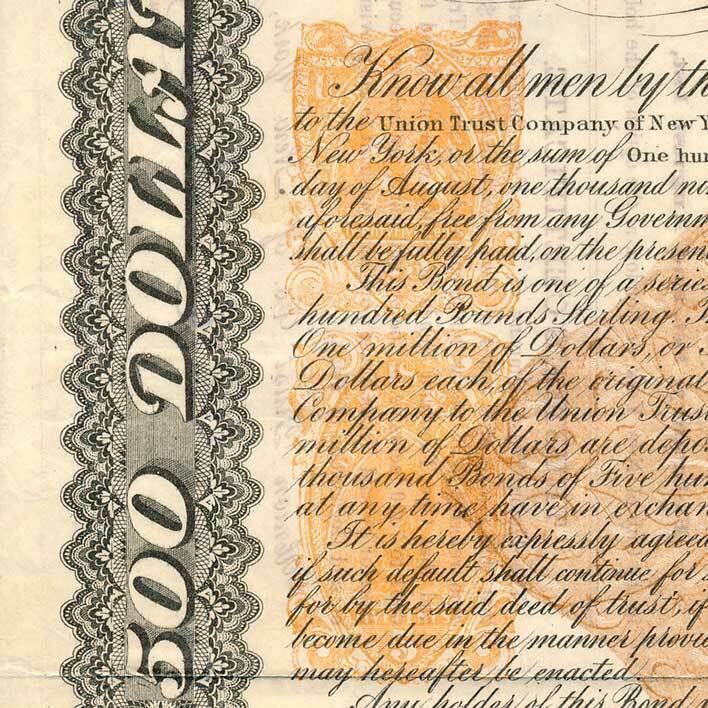 500 DOLLAR
Know all men by th
to the Union Trust Company of New Y
New York, or the sum of One hun
day of August, one thousand ni
aforesaid, free from any Governm
shall be fully paid, on the presen
This Bond is one of a series
hundred Pounds Sterling. Th
One million of Dollars, or
Dollars each, of the original
Company to the Union Trust
million of Dollars are depos
thousand Bonds of Five hun
at any time have in exchan
It is hereby expressly agreed
if such default shall continue for s
for by the said deed of trust, if
become due in the manner provi
may hereafter be enacted.
Any holder of this Bond